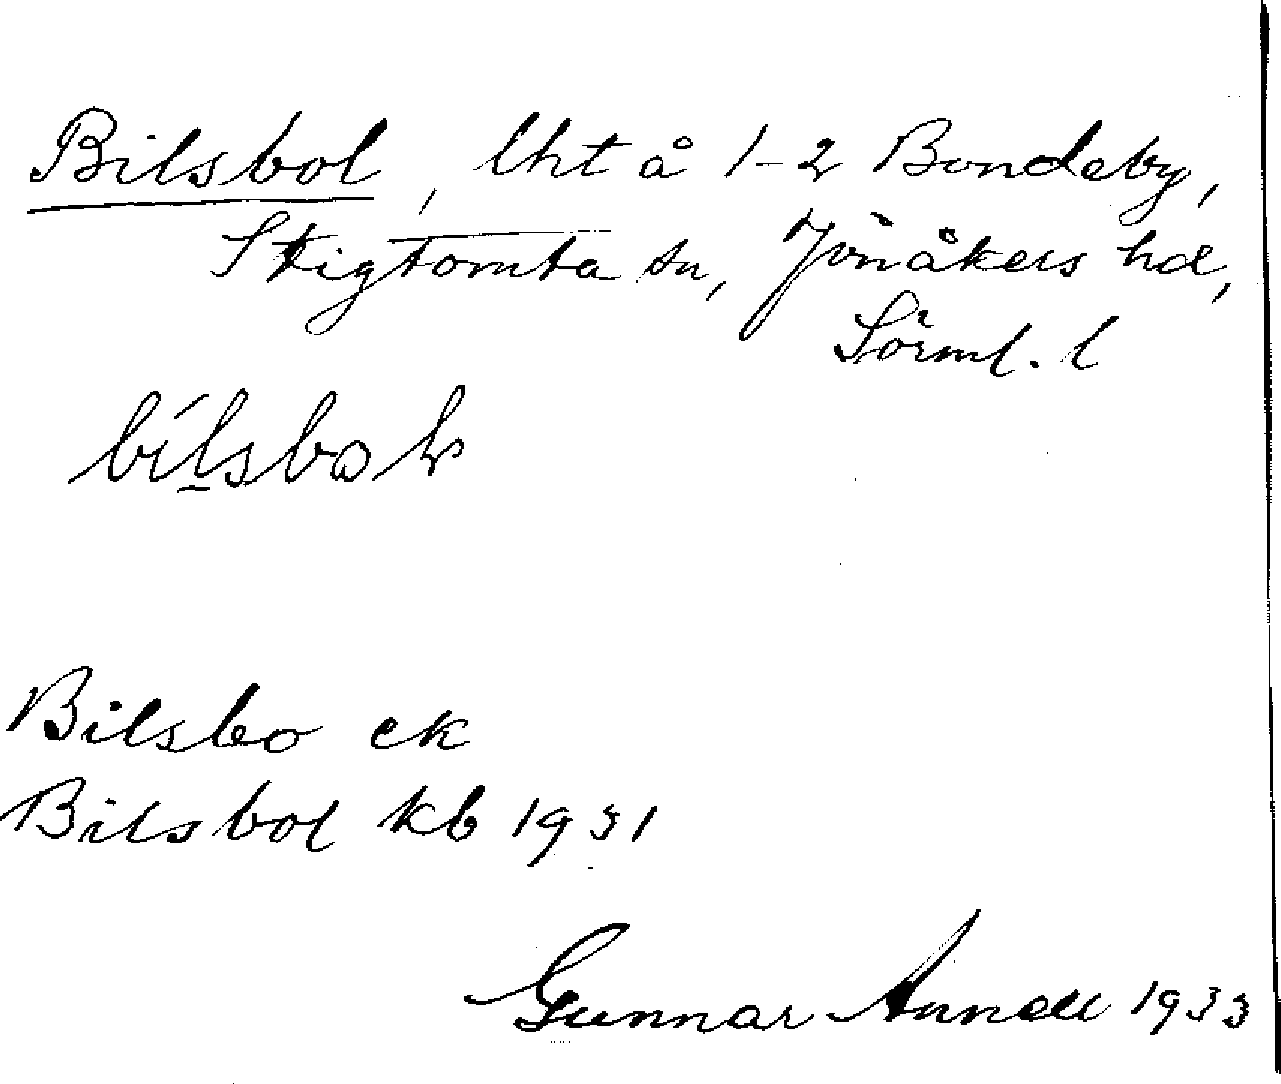 Bilsbol, lht å 1-2 Bondeby,
Stigtomta sn, Jönåkers hd,
Sörml. l
Bilsbo ek
Bilsbol kb 1931
Gunnar Annell 1933